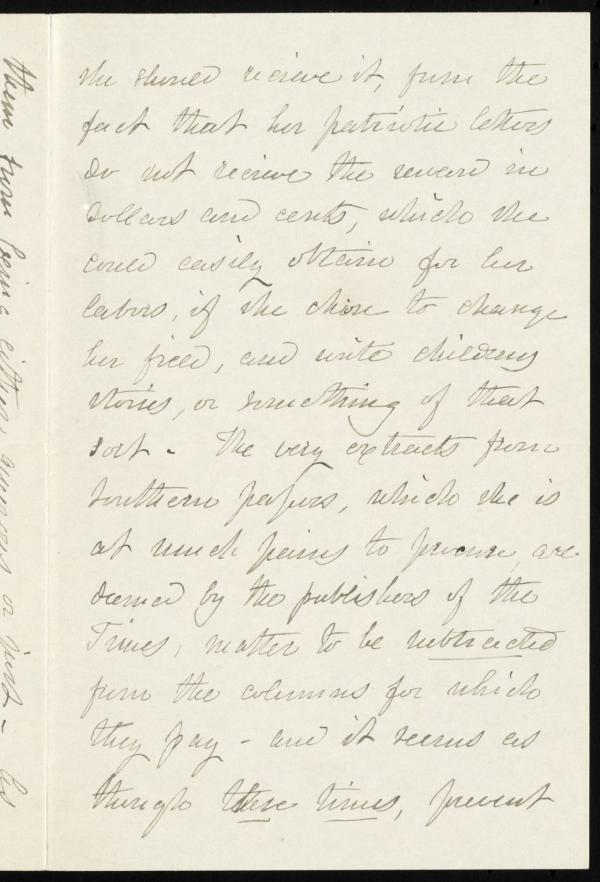 she should recieve it, from the
fact that her patriotic letters
do not recieve the reward in
dollars and cents, which she
could easily obtain for her
labors, if she chose to change
her field, and write childrens
stories, or something of that
sort - The very extracts from
Southern papers, which she is
at much pains to procure, are
deemed by the publishers of the
Times, matter to be subtracted
from the columns for which
they pay - and it seems as
though these times, prevent
them from being either, generous or just - As